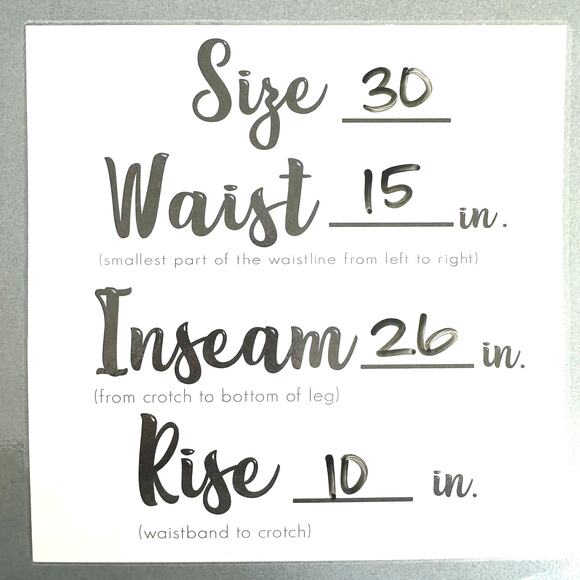 Size 30
Waist 15 in.
(smallest part of the waistline from left to right)
Inseam 26 in.
(from crotch to bottom of leg)
Rise 10 in.
(waistband to crotch)